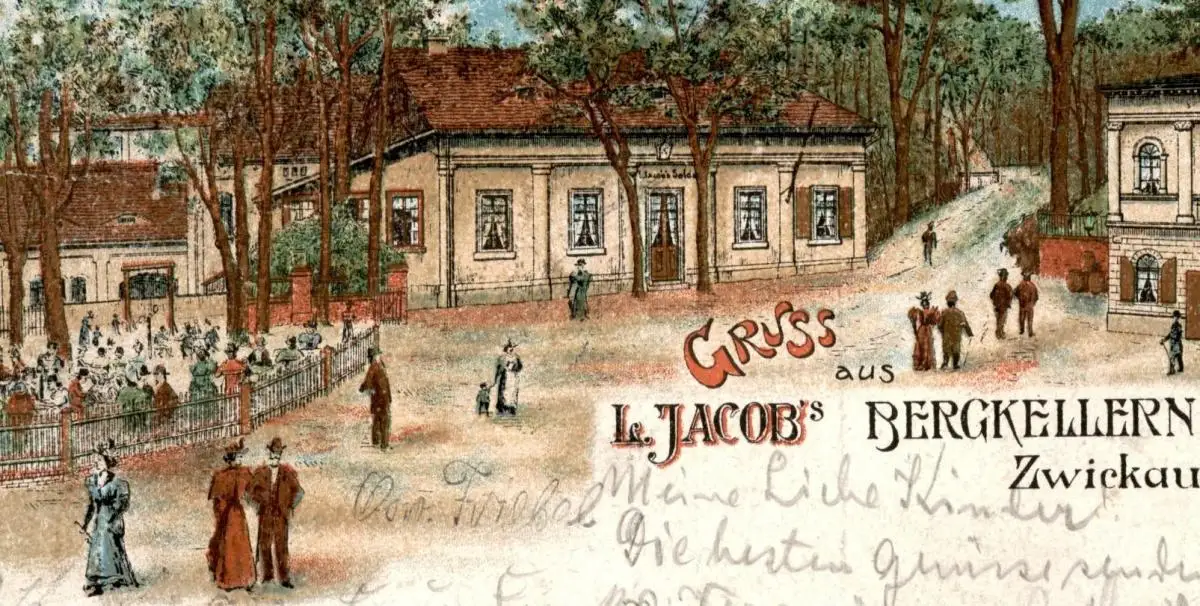 Jacob's Salon
GRUSS
aus
L. JACOB'S BERGKELLERN
Zwickau
Osw. Friebel
Meine Liebe Kinder!
Die besten Grüsse senden